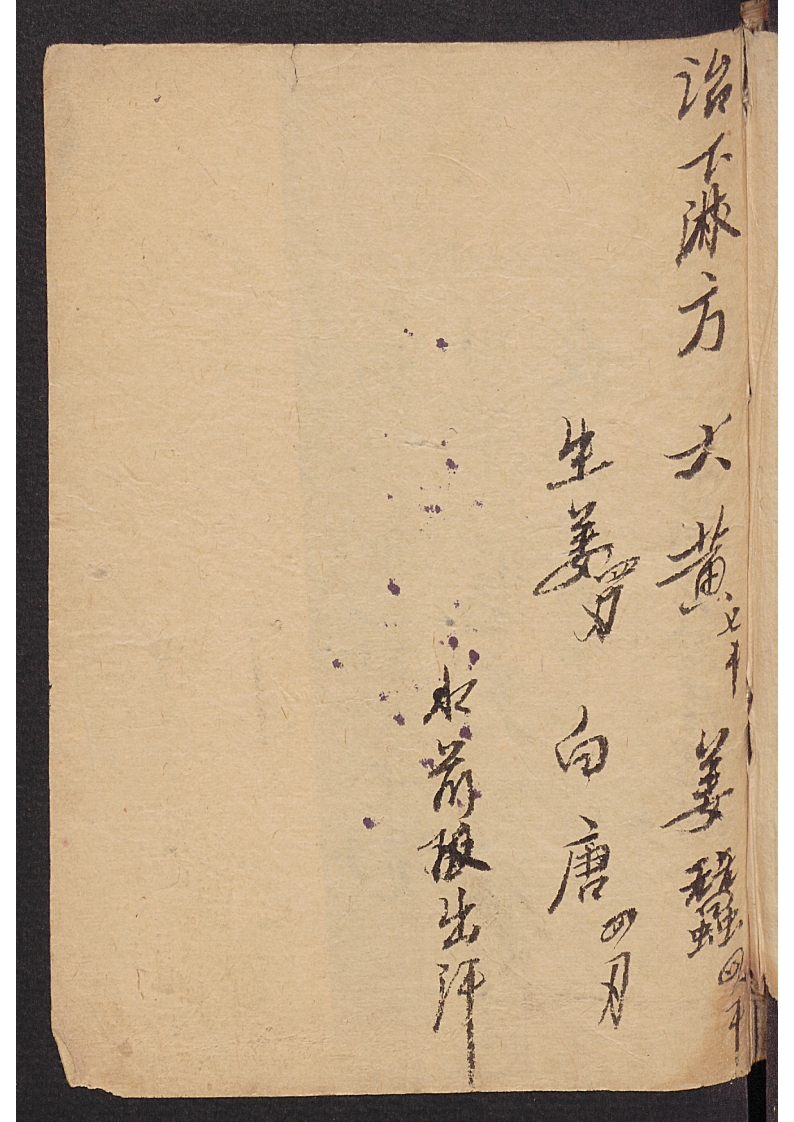 治下淋方 大黄七
姜蚕四
生姜四刃 白唐四刃
水前服出汗